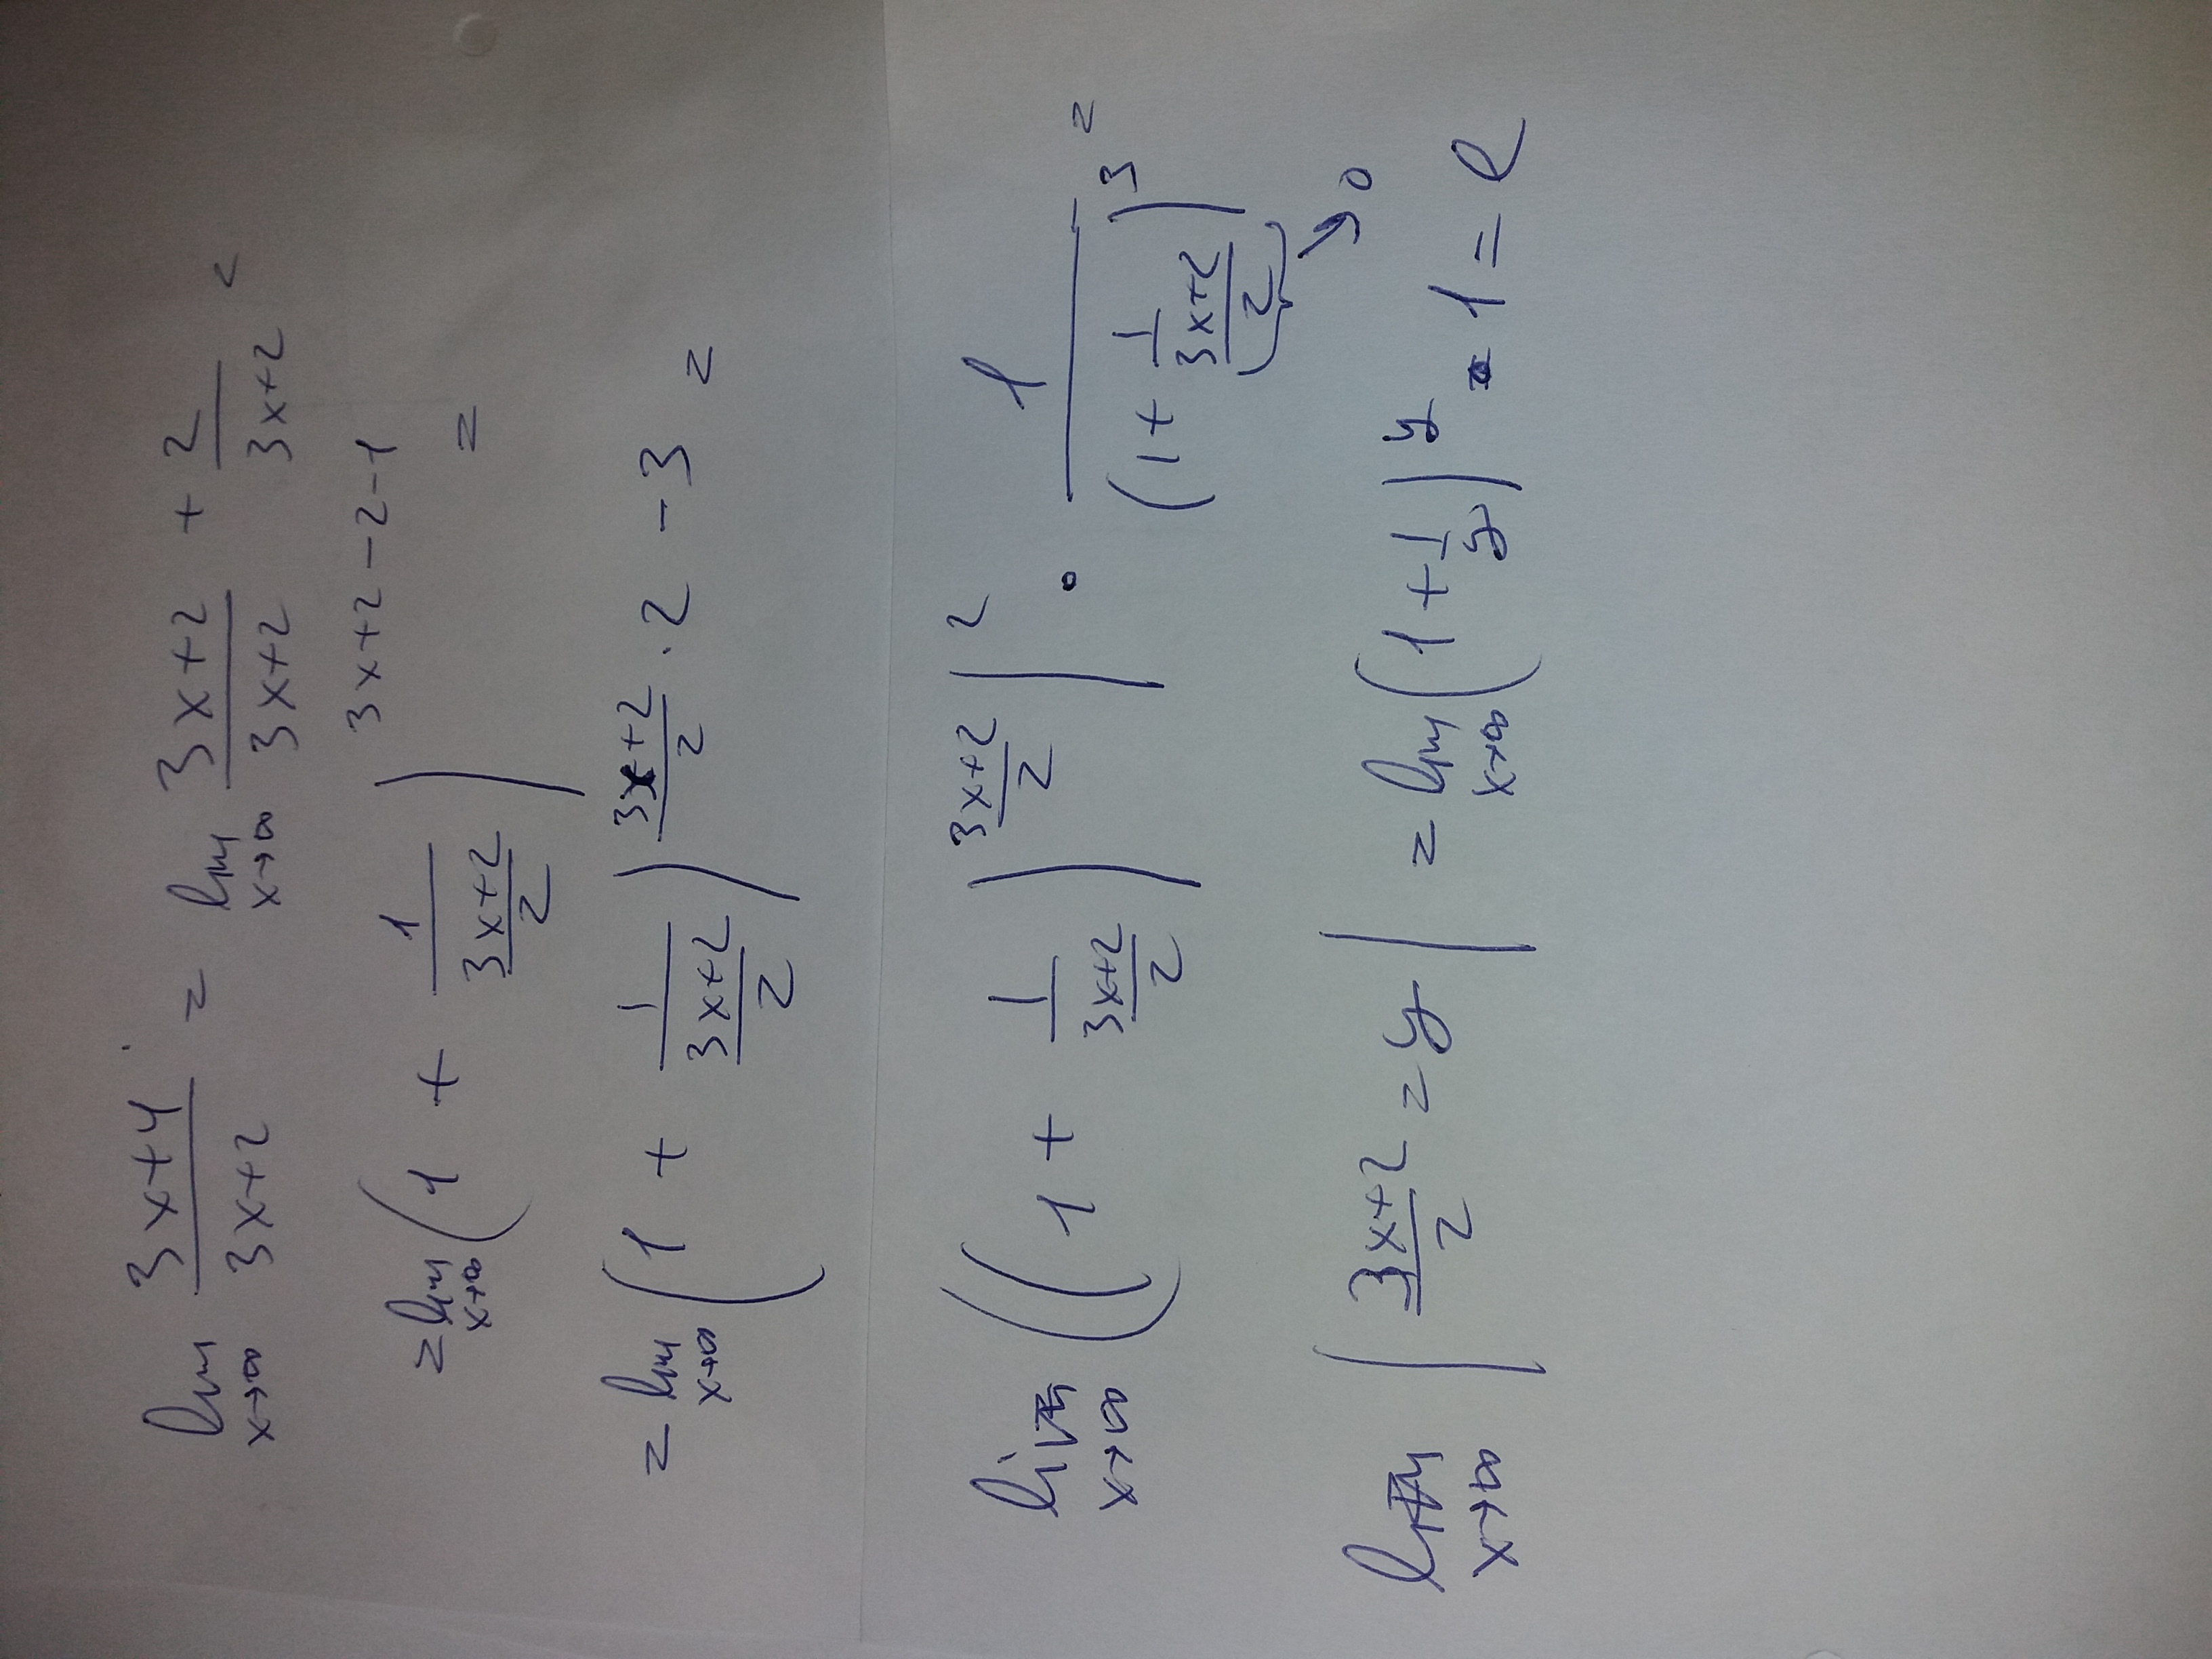 lim x→∞ (3x+4)/(3x+2) = lim x→∞ (3x+2)/(3x+2) + 2/(3x+2) =
= lim x→∞ (1 + 1/((3x+2)/2))^(3x+2-2-1) =
= lim x→∞ (1 + 1/((3x+2)/2))^((3x+2)/2 · 2 - 3) =
lim x→∞ ((1 + 1/((3x+2)/2))^((3x+2)/2))^2 · 1/(1 + 1/((3x+2)/2))^3 =
→ 0
lim x→∞ | (3x+2)/2 = y | = lim x→∞ (1 + 1/y)^y · 1 = e